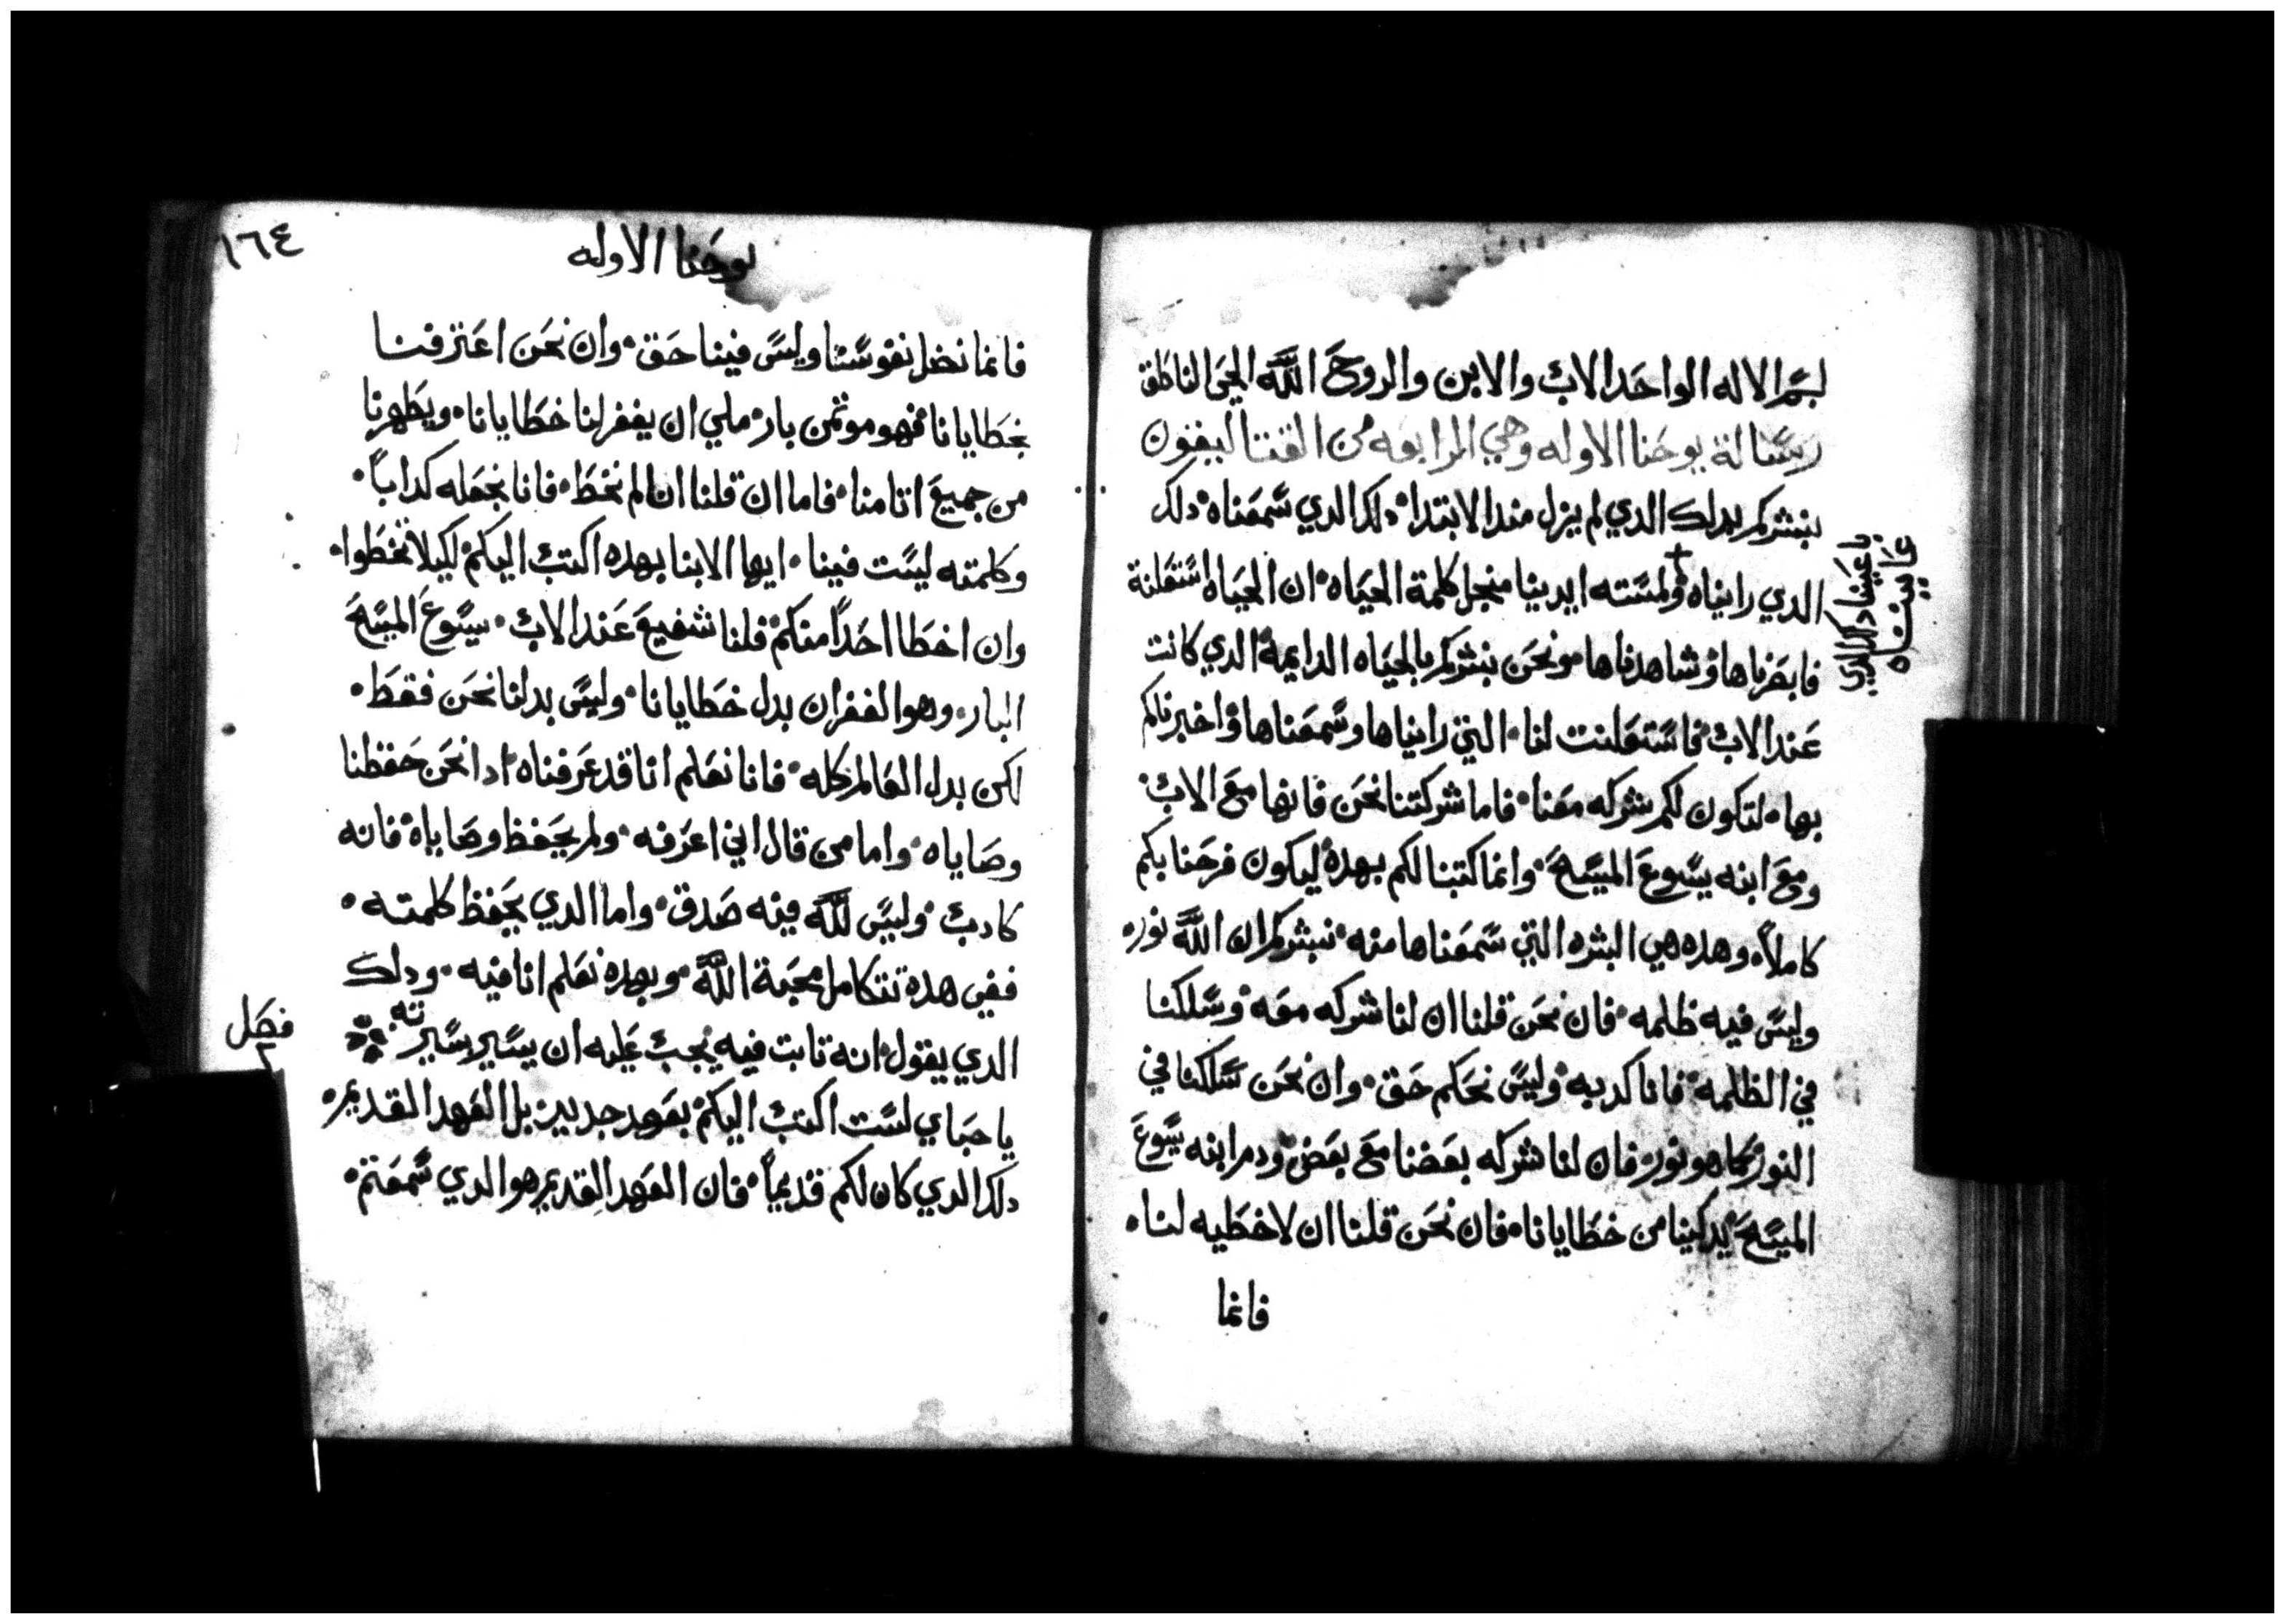 بسم الاله الواحد الاب والابن والروح الله الحي الناطق
رسالة يوحنا الاوله وهي الرابعه من القتاليقون
نبشركم بدلك الدي لم يزل مند الابتدا دلك الدي سمعناه دلك
الدي رايناه ولمسته ايدينا منجل كلمة الحياه ان الحياه استعلنة
باعيننا دلك الدي
عايناه
فابصرناها وشاهدناها ونحن نبشركم بالحياه الدايمة الدي كانت
عند الاب فاستعلنت لنا التي رايناها وسمعناها واخبرناكم
بها لتكون لكم شركه معنا فاما شركتنا نحن فانها مع الاب
ومع ابنه يسوع المسيح وانما كتبنا لكم بهده ليكون فرحنا بكم
كاملاً وهده هي البشره التي سمعناها منه نبشركم ان الله نور
وليس فيه ظلمه فان نحن قلنا ان لنا شركه معه وسلكنا
في الظلمه فانا كدبه وليس نحكم حق وان نحن سلكنا في
النور كما هو نور فان لنا شركه بعضنا مع بعض ودم ابنه يسوع
المسيح يدكينا من خطايانا فان نحن قلنا ان لا خطيه لنا
فانما
١٦٤
يوحنا الاوله
فانما نضل نفوسنا وليس فينا حق وان نحن اعترفنا
بخطايانا فهو موتمن بار ملي ان يغفر لنا خطايانا ويطهرنا
من جميع اتامنا فاما ان قلنا اننا لم نخط فانا نجعله كداباً
وكلمته ليست فينا ايها الابنا بهده اكتب اليكم لكيلا تخطوا
وان اخطا احداً منكم فلنا شفيع عند الاب يسوع المسيح
البار وهو الغفران بدل خطايانا وليس بدلنا نحن فقط
لكن بدل العالم كله فانا نعلم انا قد عرفناه ادا نحن حفظنا
وصاياه واما من قال اني اعرفه ولم يحفظ وصاياه فانه
كادب وليس لله فيه صدق واما الدي يحفظ كلمته
ففي هدة تتكامل محبة الله وبهده نعلم انا فيه ودلك
الدي يقول انه تابت فيه يجب عليه ان يسير بسيرته
فصل
٢
يا حباي لست اكتب اليكم بعهد جديد بل العهد القديم
دلك الدي كان لكم قديماً فان العهد القديم هو الدي سمعتم